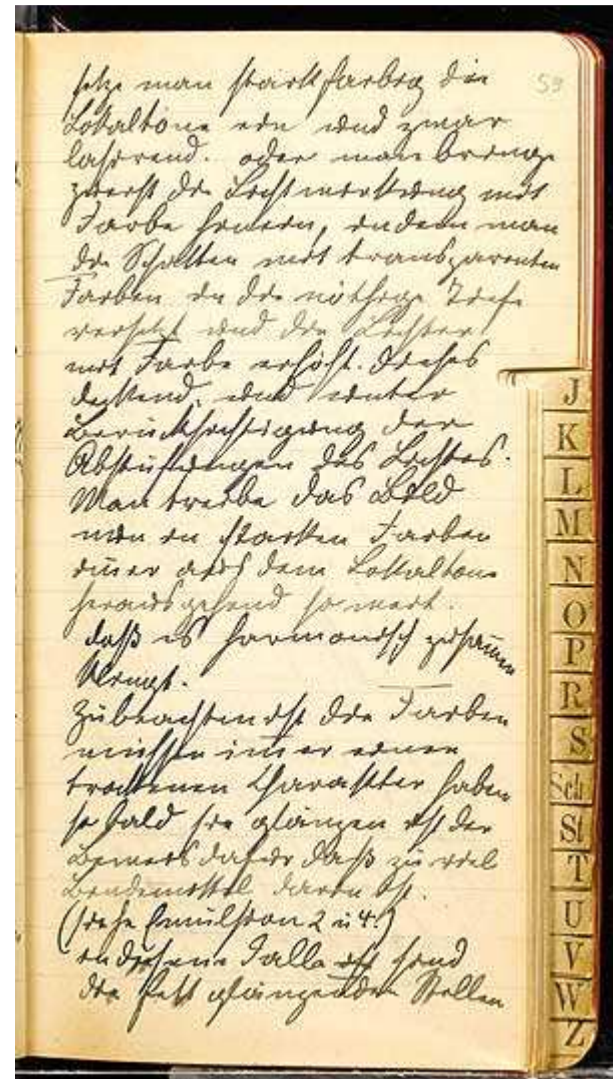 59
setze man starkfarbig die
Lokaltöne ein und zwar
lasirend. oder man bringe
zuerst die Lichtwirkung mit
Farbe herein, indem man
die Schatten mit transparenten
Farben in die nöthige Tiefe
versetzt und die Lichter
mit Farbe erhöht. Dieses
deckend, und unter
Berücksichtigung der
Abstufungen des Lichtes.
Man treibe das Bild
nun in starken Farben
im̅er aus dem Lokalton
herausgehend so weit.
daß es harmonisch zusam̅en
klingt.
Zubeachten ist die Farben
müssen im̅er einen
trockenen Charakter haben
so bald sie glänzen ist der
Beweis dafür daß zu viel
Bindemittel darin ist.
(siehe Emulsion 2 u 4.)
in diesem Falle sind
die fett glänzenden Stellen
J
K
L
M
N
O
P
R
S
Sch
St
T
U
V
W
Z